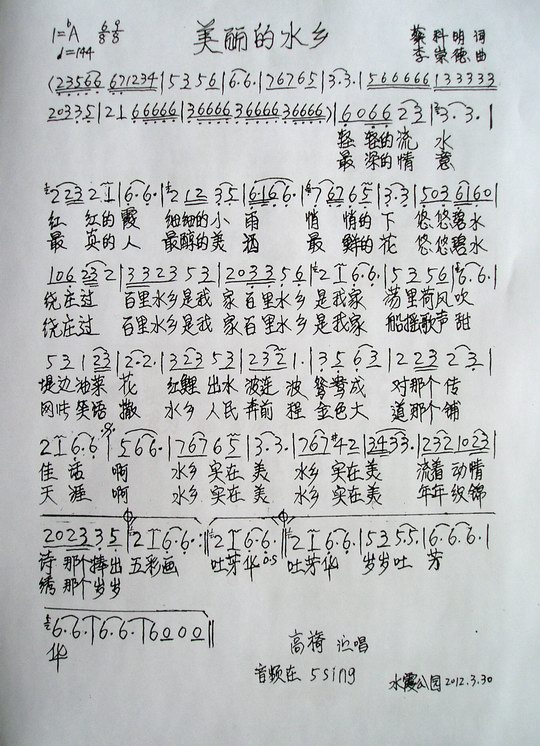 1=ᵇA 6/8 9/8
♩=144
美丽的水乡
蔡科明 词
李崇德 曲
(23566 671234|5356|6·6·|76765|3·3·|566666|133333
20335|21 66666|36666 36666 36666)|6066 23|3·3·|
轻 轻的流 水
最 深的情 意
223 21|6·6·|212 35|6166·|7676 5|3·3|503 6160|
红 红的霞 细细的小 雨 悄 悄的下 悠悠碧水
最 真的人 最醇的美 酒 最 鲜的花 悠悠碧水
106 23 2|3323 53|2033 56|21 6·6·|53 56|6·6·|
绕庄过 百里水乡是我 家百里水乡 是我家 荡里荷风吹
绕庄过 百里水乡是我 家百里水乡 是我家 船摇歌声甜
53 1 23|2·2·|323 53|232 1·|3 5 63|223 23·|
堤边油菜 花 红鲤 出水 波连 波 鸳鸯成 对那个 传
网片笑语 撒 水乡 人民 奔前 程 金色大 道那个 铺
21 6·6·|566·|767 65|3·3·|767 #42|3433·|232 1023|
佳 话 啊 水乡 实在 美 水乡 实在美 流着 动情
天 涯 啊 水乡 实在 美 水乡 实在美 年年 织锦
2023 35|21 6·6·:‖21 6·6·‖21 6·6·|53 55·|6·6·6·|
诗 那个捧出 五彩画 吐芬华 D.S 吐芬华 岁岁吐 芳
绣 那个岁岁
6·6·|6·6·|6000‖
华
高椅 演唱
音频在 5sing
水霞公园 2012.3.30